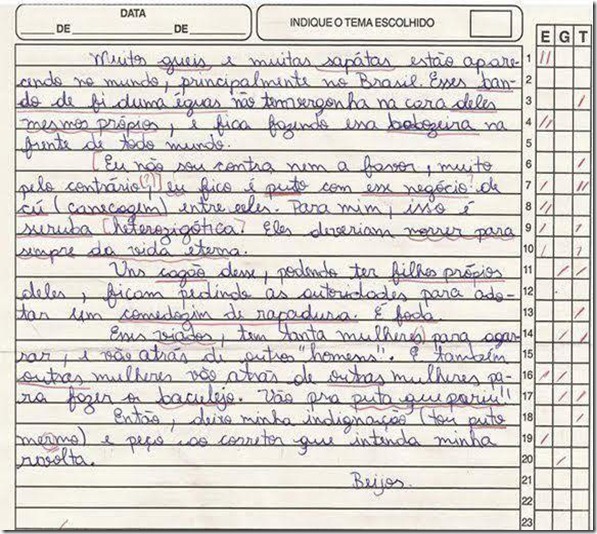 DATA
DE DE
INDIQUE O TEMA ESCOLHIDO
E G T
Muitos gueis e muitas sapátas estão apare- 1
cendo no mundo, principalmente no Brasil. Esses ban- 2
do de fi duma éguas não tem vergonha na cara deles 3
mesmos própios, e fica fazendo essa babozeira na 4
frente de todo mundo. 5
Eu não sou contra nem a favor, muito 6
pelo contrário(?), eu fico é puto com esse negócio de 7
cú (canecagem) entre eles. Para mim, isso é 8
suruba heterozigótica! Eles deveriam morrer para 9
sempre da vida eterna. 10
Uns cagão desse, podendo ter filhos própios 11
deles, ficam pedindo as autoridades para ado- 12
tar um comedozim de rapadura. É foda. 13
Esses viados, tem tanta mulheres para agar- 14
rar, e vão atrás de outros "homens". E também 15
outras mulheres vão atrás de outras mulheres pa- 16
ra fazer o baculejo. Vão pra puta que pariu!! 17
Então, deixo minha indignação (tou puto 18
mermo) e peço ao corretor que intenda minha 19
rovolta. 20
Beijos. 21
22
23